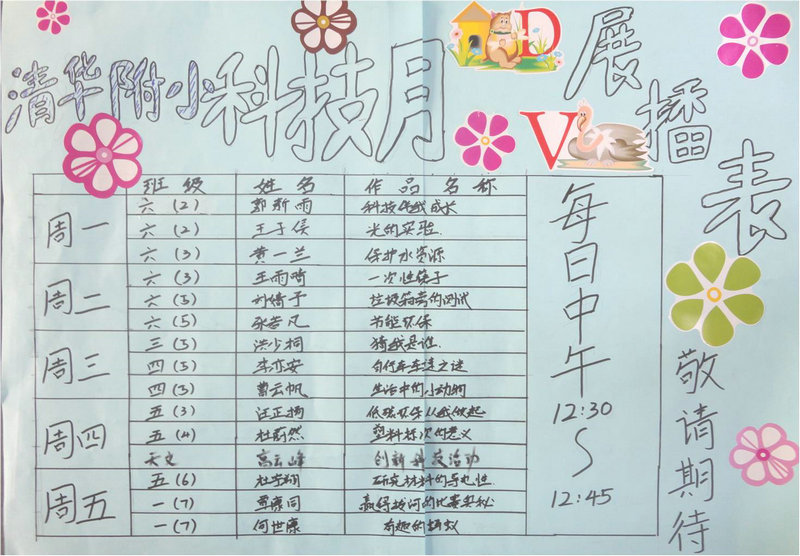 清华附小科技月DV展播表
班级 姓名 作品名称
周一
六(2) 郭新雨 科技伴我成长
六(2) 王子侯 光的实验
六(3) 黄一兰 保护水资源
周二
六(3) 王雨晴 一次性筷子
六(3) 刘绮予 垃圾箱旁的测试
六(5) 张若凡 节能环保
周三
三(3) 洪少桐 猜我是谁
四(3) 李亦安 自行车车速之谜
四(3) 曹云帆 生活中的小动物
周四
五(3) 汪正扬 低碳环保从我做起
五(4) 杜蔚然 塑料标次的意义
天文 高云峰 创新科技活动
周五
五(6) 研究材料的导电性
一(7) 覃康同 赢得拔河的比赛奥秘
一(7) 何世康 有趣的蚂蚁
每日中午
12:30
~
12:45
敬请期待